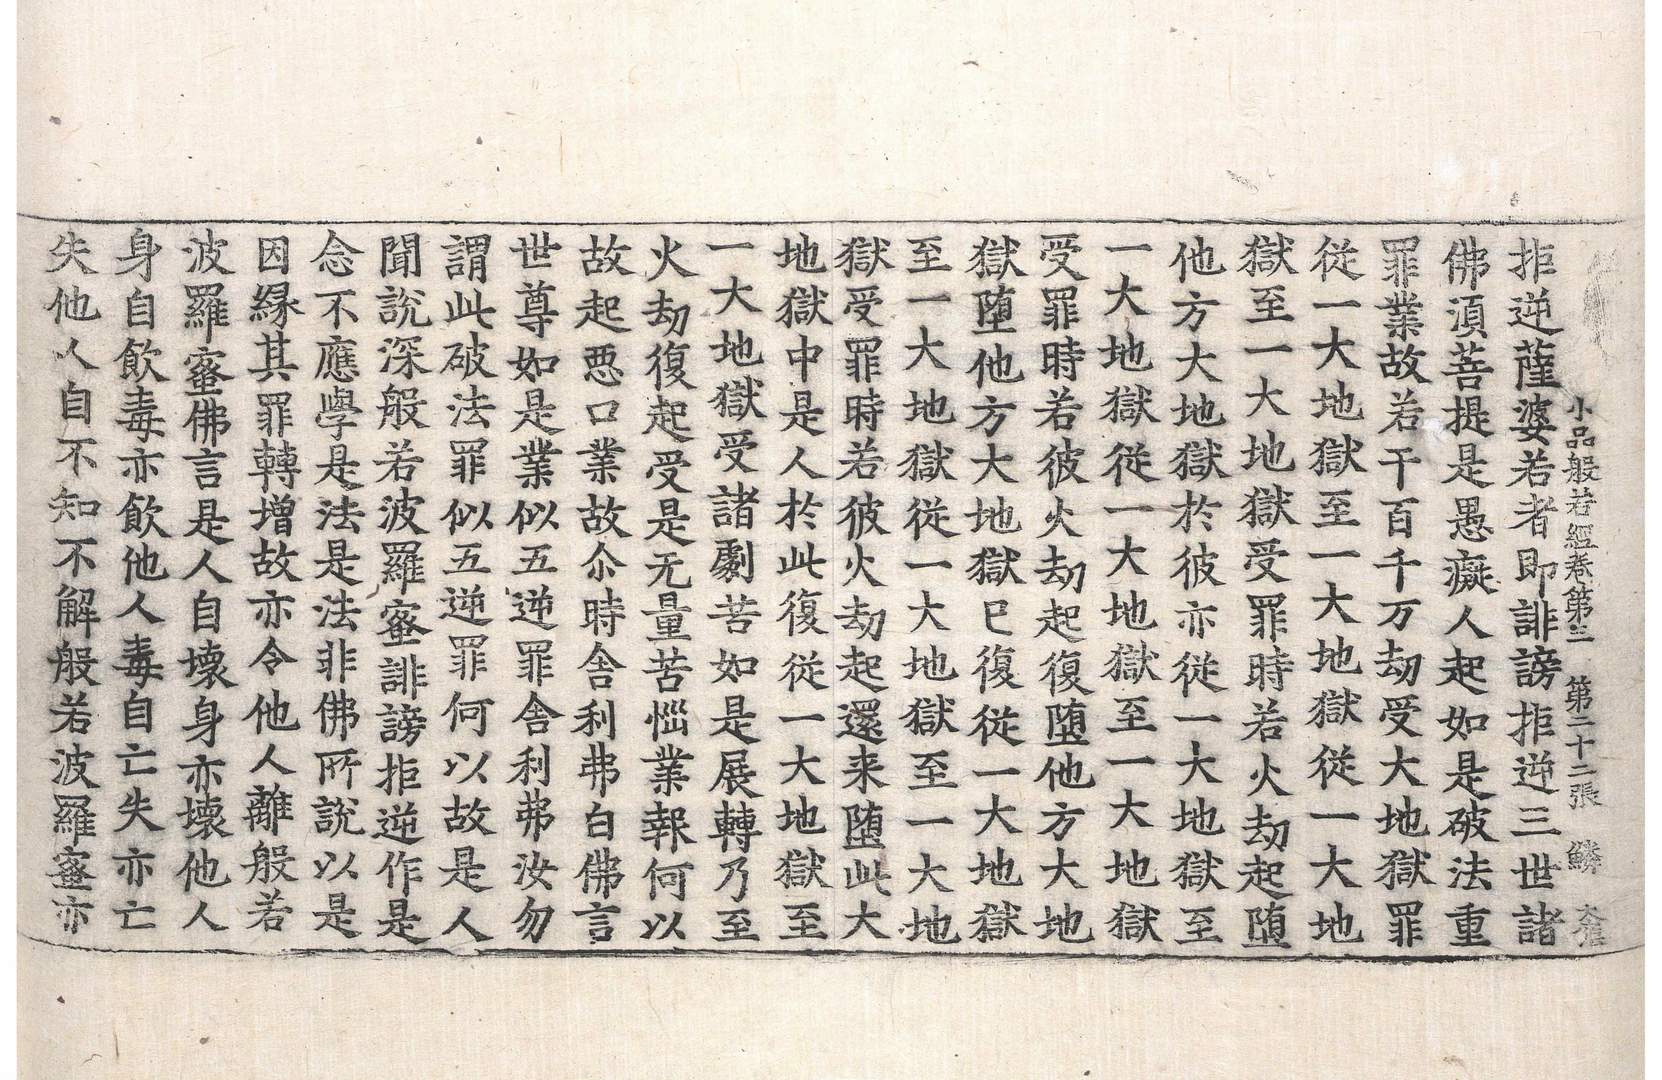 小品般若經卷第三　第二十二張　鱗
拒逆薩婆若者即誹謗拒逆三世諸
佛湏菩提是愚癡人起如是破法重
罪業故若干百千万劫受大地獄罪
從一大地獄至一大地獄從一大地
獄至一大地獄受罪時若火劫起堕
他方大地獄於彼亦從一大地獄至
一大地獄從一大地獄至一大地獄
受罪時若彼火劫起復堕他方大地
獄堕他方大地獄已復從一大地獄
至一大地獄從一大地獄至一大地
獄受罪時若彼火劫起還来堕此大
地獄中是人於此復從一大地獄至
一大地獄受諸劇苦如是展轉乃至
火劫復起受是无量苦惱業報何以
故起惡口業故尒時舍利弗白佛言
世尊如是業似五逆罪舍利弗汝勿
謂此破法罪似五逆罪何以故是人
聞說深般若波羅蜜誹謗拒逆作是
念不應學是法是法非佛所說以是
因緣其罪轉增故亦令他人離般若
波羅蜜佛言是人自壞身亦壞他人
身自飲毒亦飲他人毒自亡失亦亡
失他人自不知不解般若波羅蜜亦